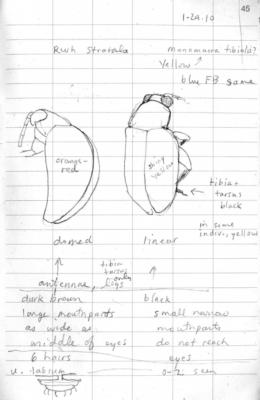 45
1-24.10
Rwh stratala
monomacra tibiala?
Yellow
blue FB same
orange-
red
shiny
yellow
tibia +
tarsus
black
in some
indivs, yellow
domed
linear
tibia
tarsus
only
antennae, legs
dark brown
black
large mouthparts
small narrow
as wide as
mouthparts
middle of eyes
do not reach
eyes
6 hairs
0-2 seen
v. labrum